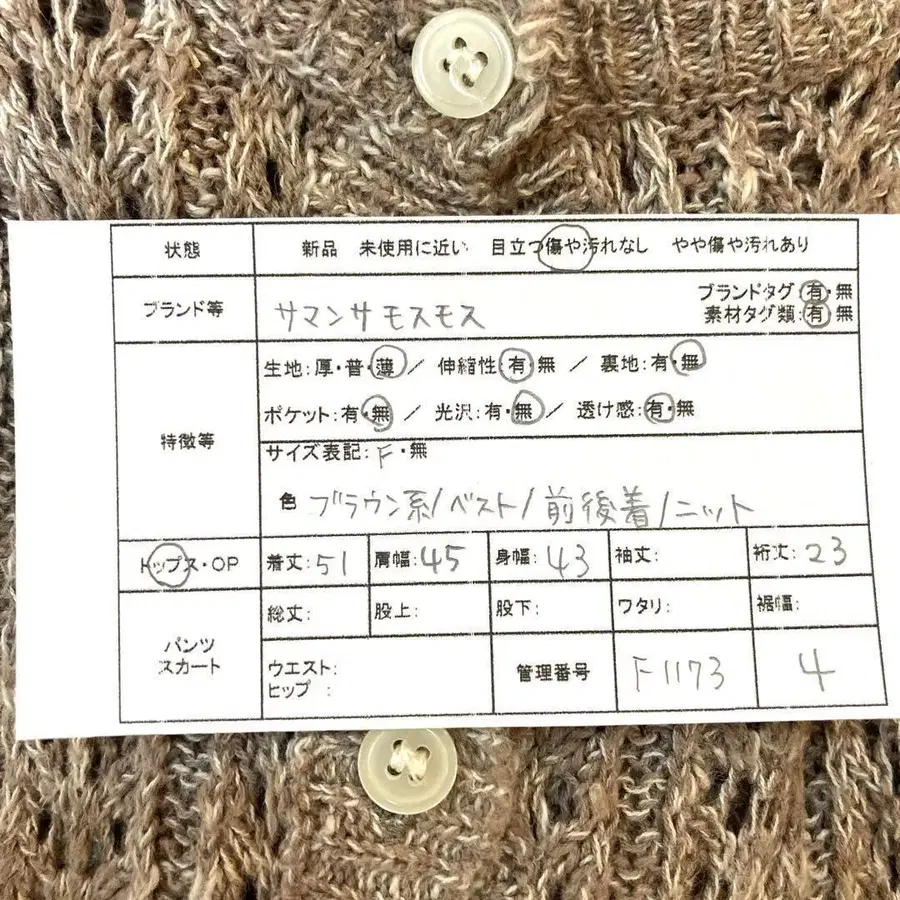 状態 新品 未使用に近い 目立つ傷や汚れなし やや傷や汚れあり
ブランド等 サマンサモスモス ブランドタグ:有・無
素材タグ類:有・無
特徴等 生地:厚・普・薄 / 伸縮性:有・無 / 裏地:有・無
ポケット:有・無 / 光沢:有・無 / 透け感:有・無
サイズ表記:F・無
色 ブラウン系/ベスト/前後着/ニット
トップス・OP 着丈:51 肩幅:45 身幅:43 袖丈: 裄丈:23
パンツ スカート 総丈: 股上: 股下: ワタリ: 裾幅:
ウエスト:
ヒップ : 管理番号 F1173 4